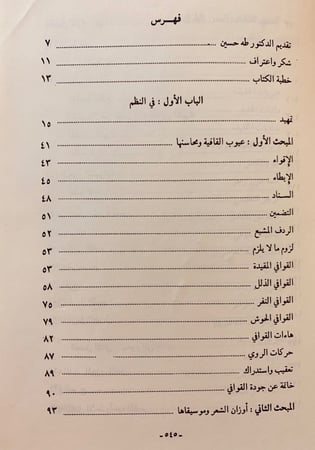 فهـرس
تقديم الدكتور طه حسين ٧
شكر واعتراف ١١
خطبة الكتاب ١٣
الباب الأول : في النظم
تمهيد ١٥
المبحث الأول : عيوب القافية ومحاسنها ٤١
الإقواء ٤٣
الإيطاء ٤٥
السناد ٤٨
التضمين ٥١
الردف المشبع ٥٢
لزوم ما لا يلزم ٥٣
القوافي المقيدة ٥٣
القوافي الذلل ٥٨
القوافي النفر ٧٥
القوافي الحوش ٧٩
هاءات القوافي ٨٢
حركات الروي ٨٧
تعقيب واستدراك ٨٩
خاتمة عن جودة القوافي ٩٠
المبحث الثاني : أوزان الشعر وموسيقاها ٩٣
-٥٤٥-